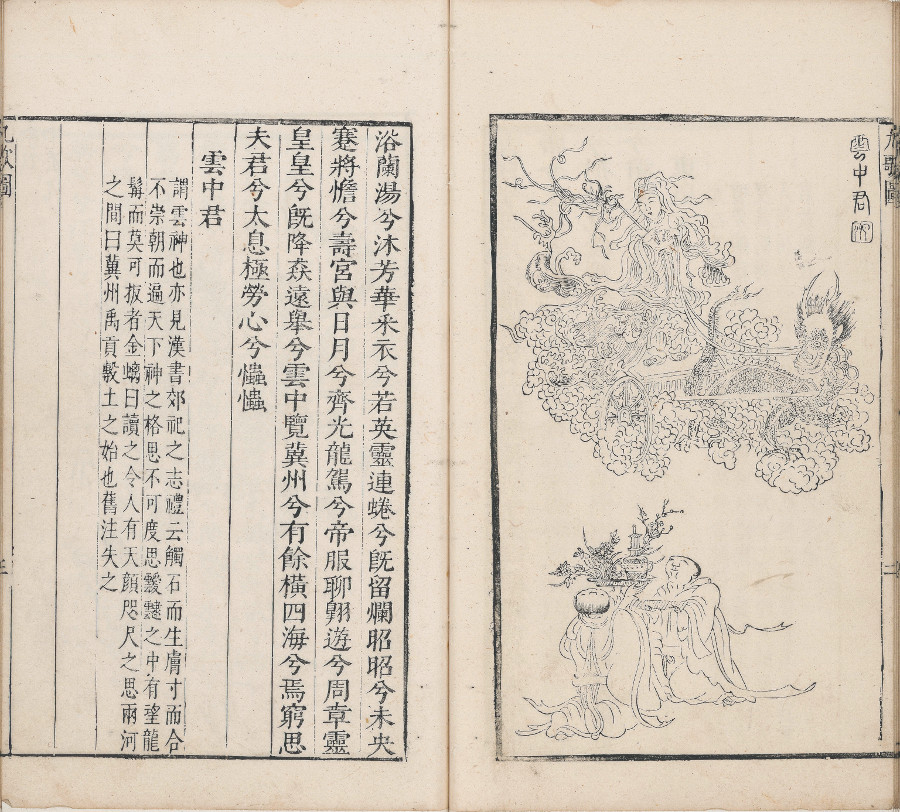 九歌圖
雲中君
二
浴蘭湯兮沐芳華采衣兮若英靈連蜷兮旣留爛昭昭兮未央
蹇將憺兮壽宮與日月兮齊光龍駕兮帝服聊翺遊兮周章靈
皇皇兮旣降猋遠舉兮雲中覽冀州兮有餘橫四海兮焉窮思
夫君兮太息極勞心兮㦀㦀
雲中君
謂雲神也亦見漢書郊祀之志禮云觸石而生膚寸而合
不崇朝而遍天下神之格思不可度思靉靆之中有望龍
髯而莫可扳者金螭曰讀之令人有天顏咫尺之思兩河
之間曰冀州禹貢敷土之始也舊注失之
九歌圖